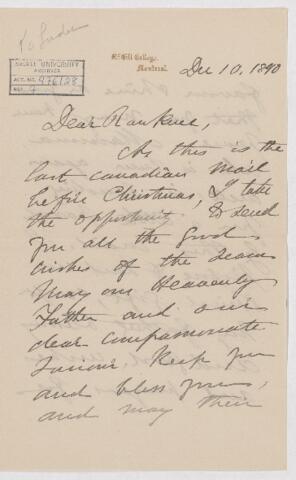 McGill College,
Montreal.
Dec 10, 1890
McGILL UNIVERSITY
ARCHIVES
ACC. NO.
REF.
Dear Rankine,
As this is the
last canadian mail
before Christmas, I take
the opportunity to send
you all the good
wishes of the season
May our Heavenly
Father and our
dear compassionate
Saviour keep you
and bless you,
and may their